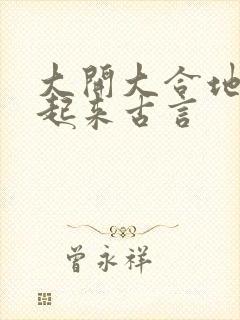 大開大合地
起来古言
曾永祥